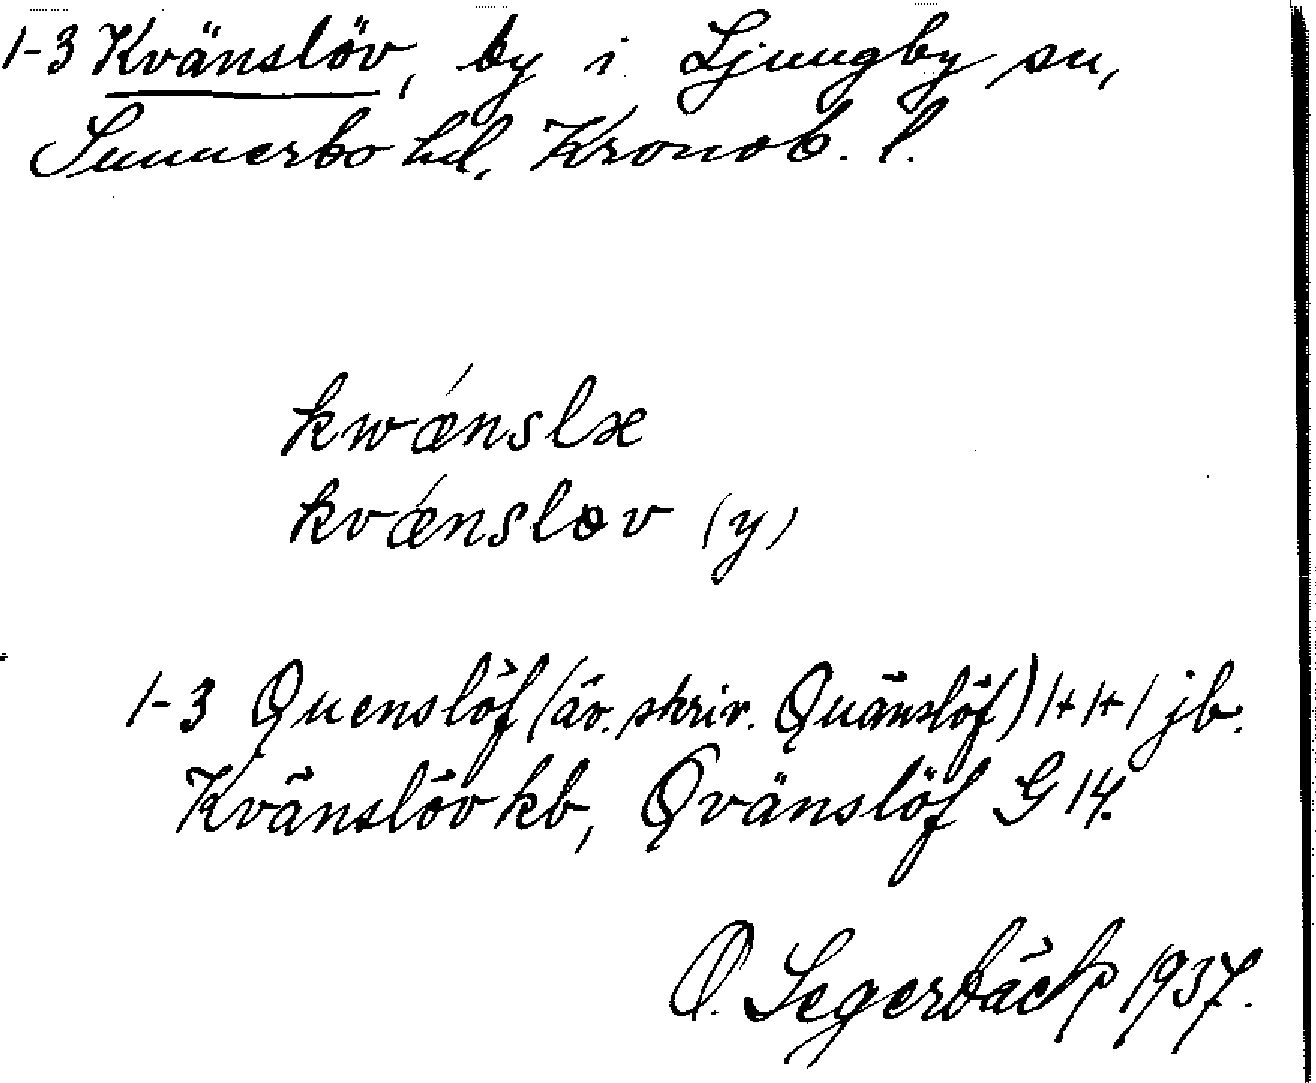 1-3 Kvänslöv, by i Ljungby sn,
Sunnerbo hd, Kronob. l.
kwǽnslæ
kvǽnsləv (y)
1-3 Quenslöf (äv. skriv. Quänslöf) 1+1+1 jb.
Kvänslöv kb, Qvänslöf G 14.
O. Segerbäck 1937.